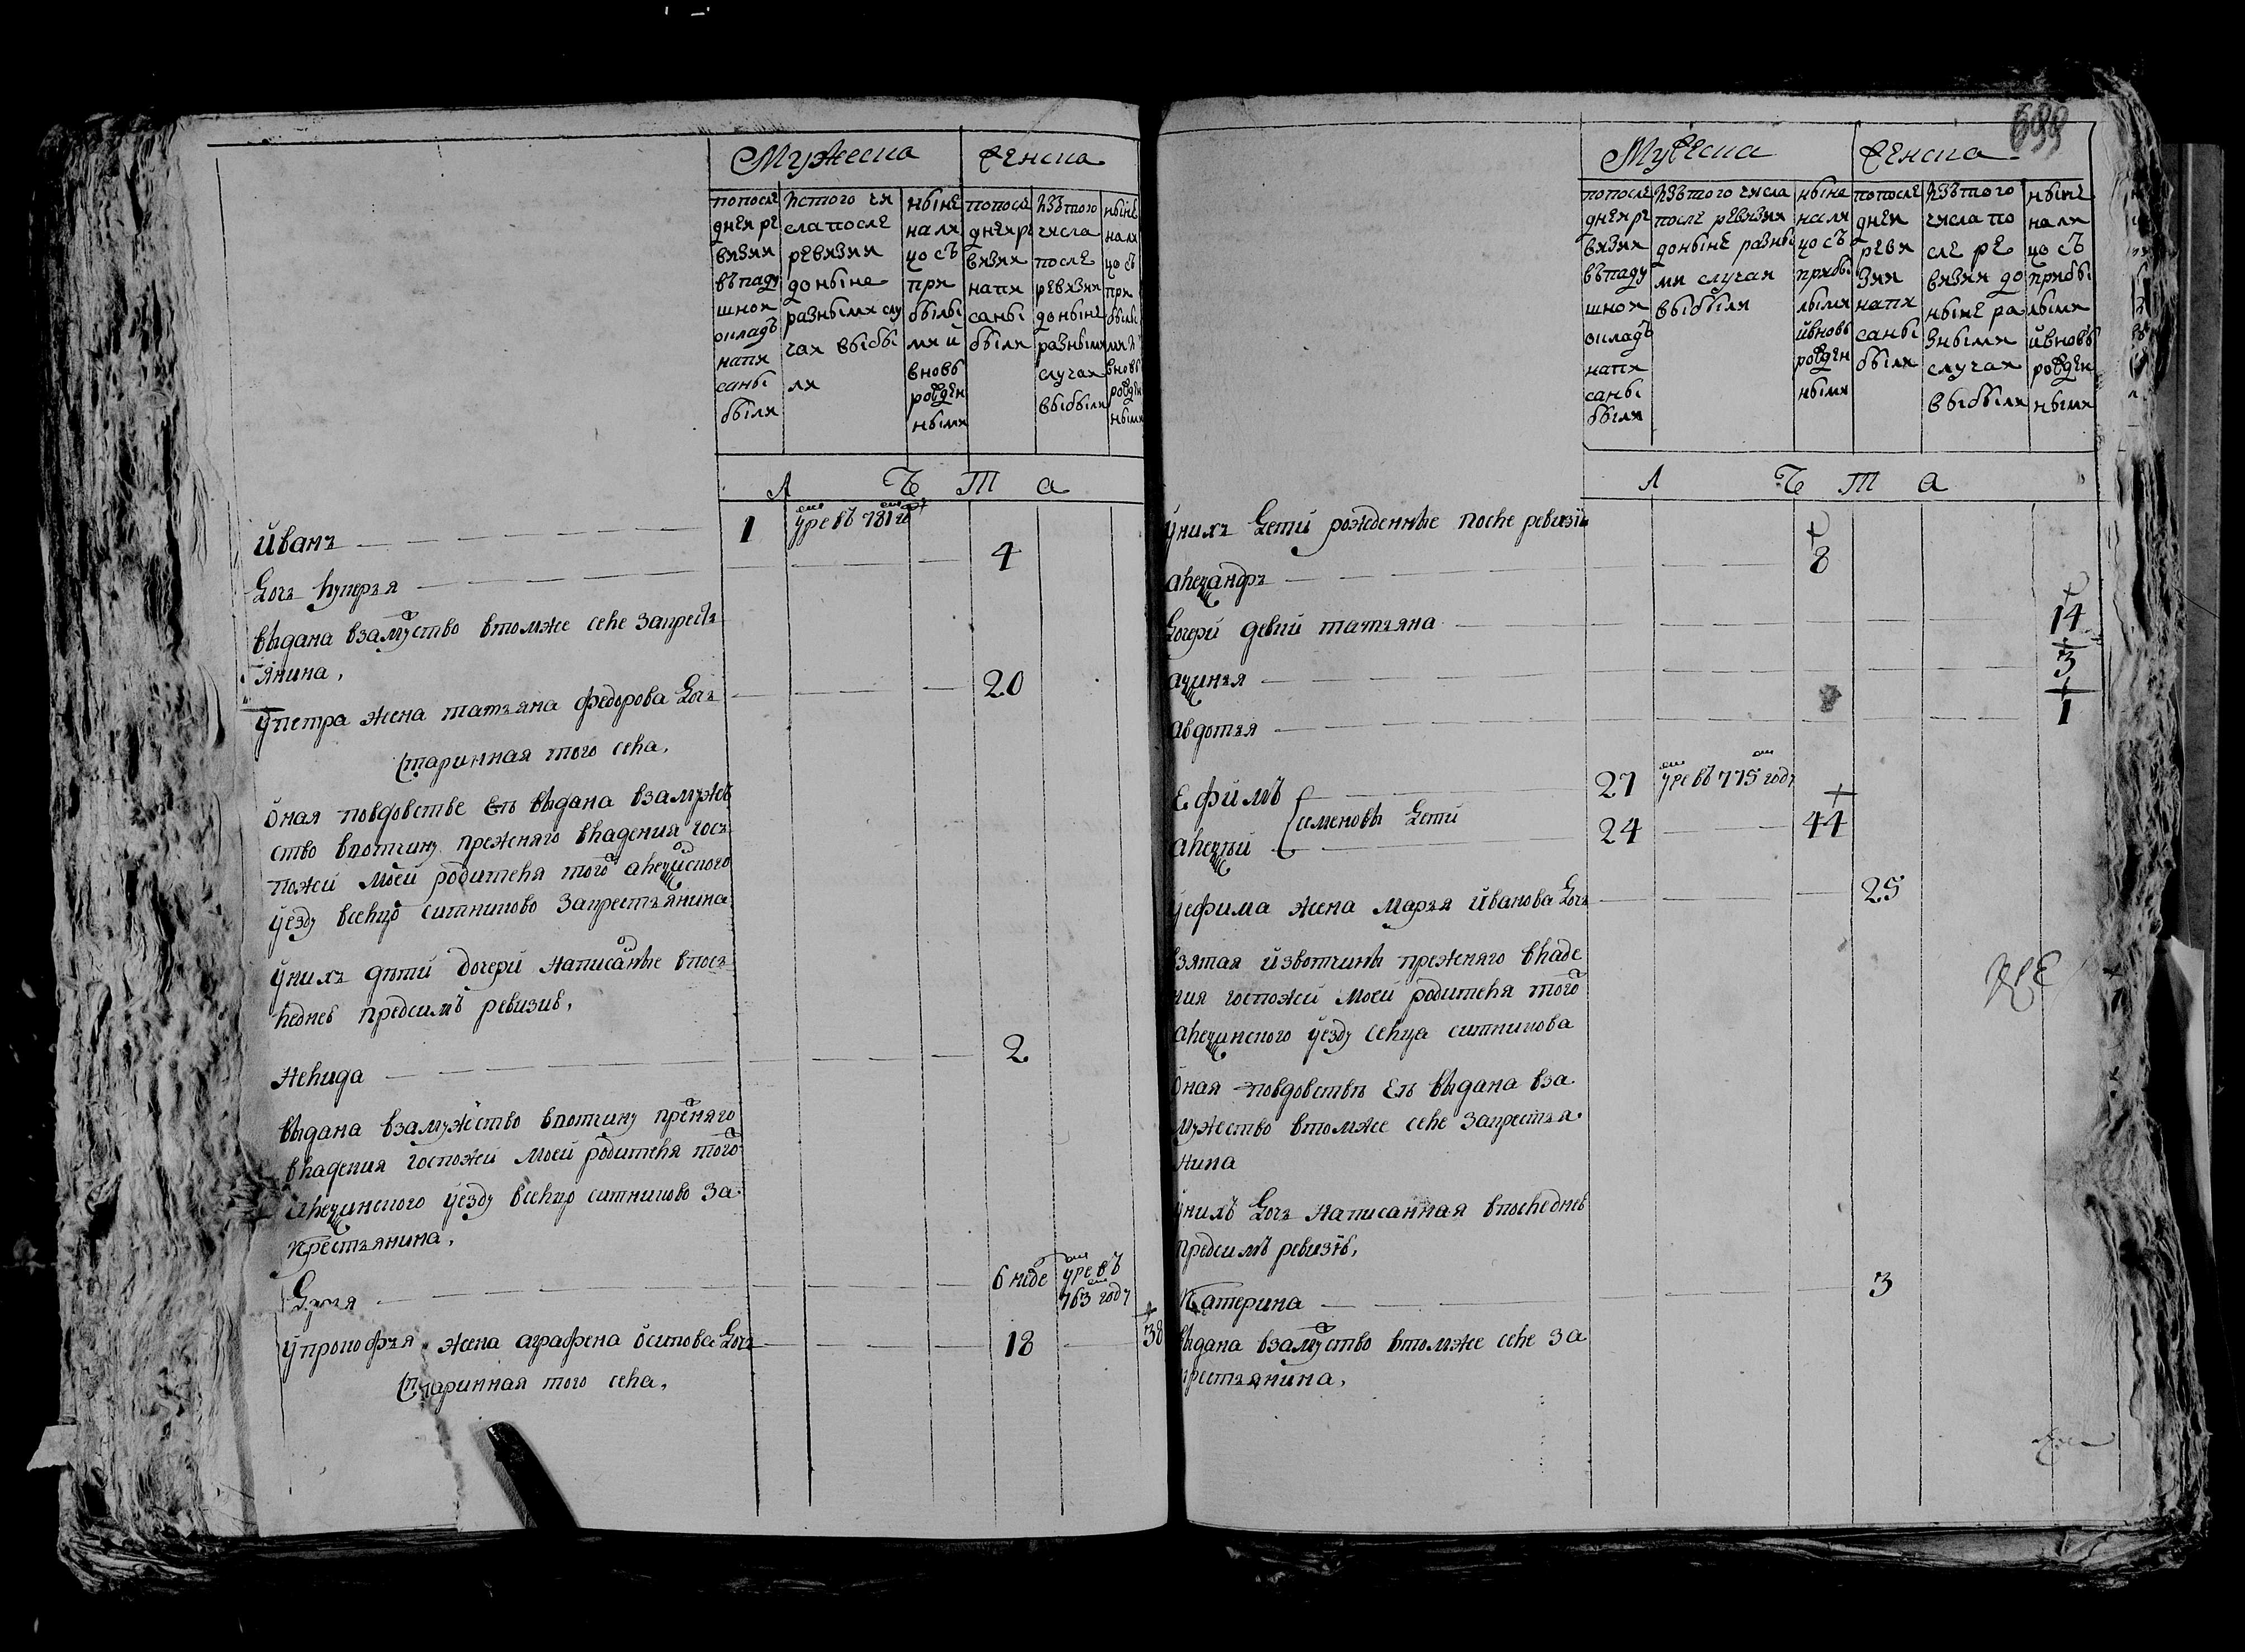 Мужеска Женска
по после
дней ре
визии
въ поду
шной
окладъ
напи
саны
были
Ис того чи
сла после
ревизии
до ныне
разными слу
чаи выбы
ли
ныне
на ли
цо съ
при
былы
ми и
вновь
рожден
ными
по после
дней ре
визии
напи
саны
были
изъ того
числа
после
ревизии
до ныне
разными
случаи
выбыли
ныне
на ли
цо съ
при
былы
ми и
вновь
рожден
ными
Л Ѣ Т а
иванъ 1 умре въ 781м году
Дочь лукерья 4
выдана взамуство втомже селе закресть
янина,
упетра жена татьяна федорова дочь 20
старинная того села,
оная повдовстве ея выдана взамужев
ство ввотчину прежняго владения гос
пожей моей родителя того алексинского
уезду вселцо ситниково закрестьянина
унихъ дети дочери написанные впос
ледней предсимъ ревизие,
Нелида 2
выдана взамужество ввотчину прежняго
владения госпожей моей родителя того
алексинского уезду вселцо ситниково за
крестьянина,
6 неде умре въ
763м году
упрокофья жена аграфена осипова дочь 18 38
старинная того села,
699
Мужеска Женска
по после
дней ре
визии
въ поду
шной
окладъ
напи
саны
были
Изъ того числа
после ревизии
до ныне разны
ми случаи
выбыли
ныне
на ли
цо съ
прибы
лыми
и вновь
рожден
ными
по после
дней
реви
зии
напи
саны
были
изъ того
числа по
сле ре
визии до
ныне ра
зными
случаи
выбыли
ныне
на ли
цо съ
прибы
лыми
и вновь
рожден
ными
Л Ѣ Т а
унихъ дети рожденные после ревизии
александръ 8
дочери девки татьяна 14
аксинья 3
авдотья 1
Ефимъ 27 умре въ 775м году
семеновы дети
алексей 24 44
уефима жена марья иванова дочь 25
взятая извотчины прежняго владе
ния госпожей моей родителя того
алексинского уезду селца ситникова
оная повдовстве ея выдана вза
мужество втомже селе закрестья
нина
унихъ дочь написанная впоследней
предсимъ ревизие,
Катерина 3
выдана взамуство втомже селе за
крестьянина,